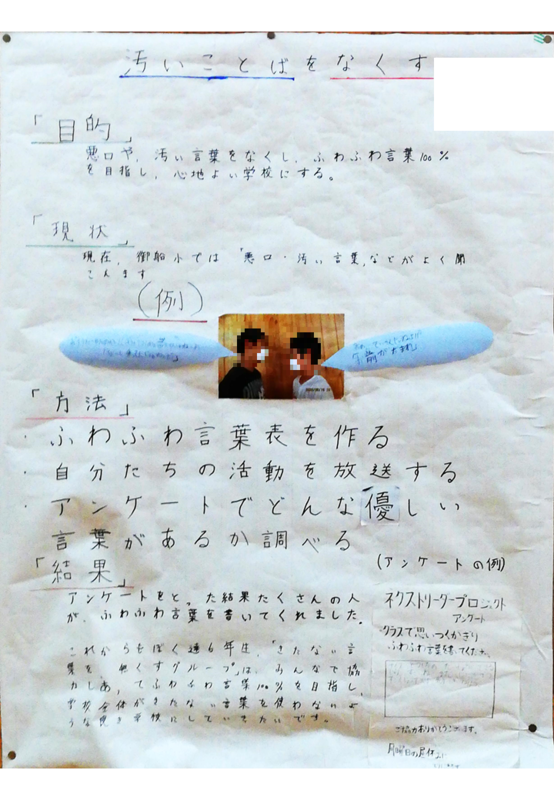 汚いことばをなくす
「目的」
悪口や、汚い言葉をなくし、ふわふわ言葉100%
を目指し、心地よい学校にする。
「現状」
現在、御船小では「悪口・汚い言葉」などがよく聞
こえます
(例)
「方法」
・ふわふわ言葉表を作る
・自分たちの活動を放送する
・アンケートでどんな優しい
言葉があるか調べる
「結果」
アンケートをとった結果たくさんの人
が、ふわふわ言葉を書いてくれました。
これからもぼく達6年生、「きたない言
葉を無くすグループ」は、みんなで協
力しあってふわふわ言葉100%を目指し、
学校全体がきたない言葉を使わないよ
うな良き学校にしていきたいです。
(アンケートの例)
ネクストリーダープロジェクト
アンケート
クラスで思いつくかぎり
ふわふわ言葉を書いてください。
ご協力ありがとうございます。